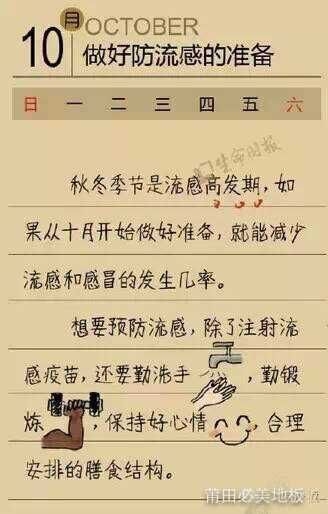 10月 OCTOBER
做好防流感的准备
日 一 二 三 四 五 六
生命时报
秋冬季节是流感高发期,如
果从十月开始做好准备,就能减少
流感和感冒的发生几率。
想要预防流感,除了注射流
感疫苗,还要勤洗手,勤锻
炼,保持好心情,合理
安排的膳食结构。
莆田必美地板